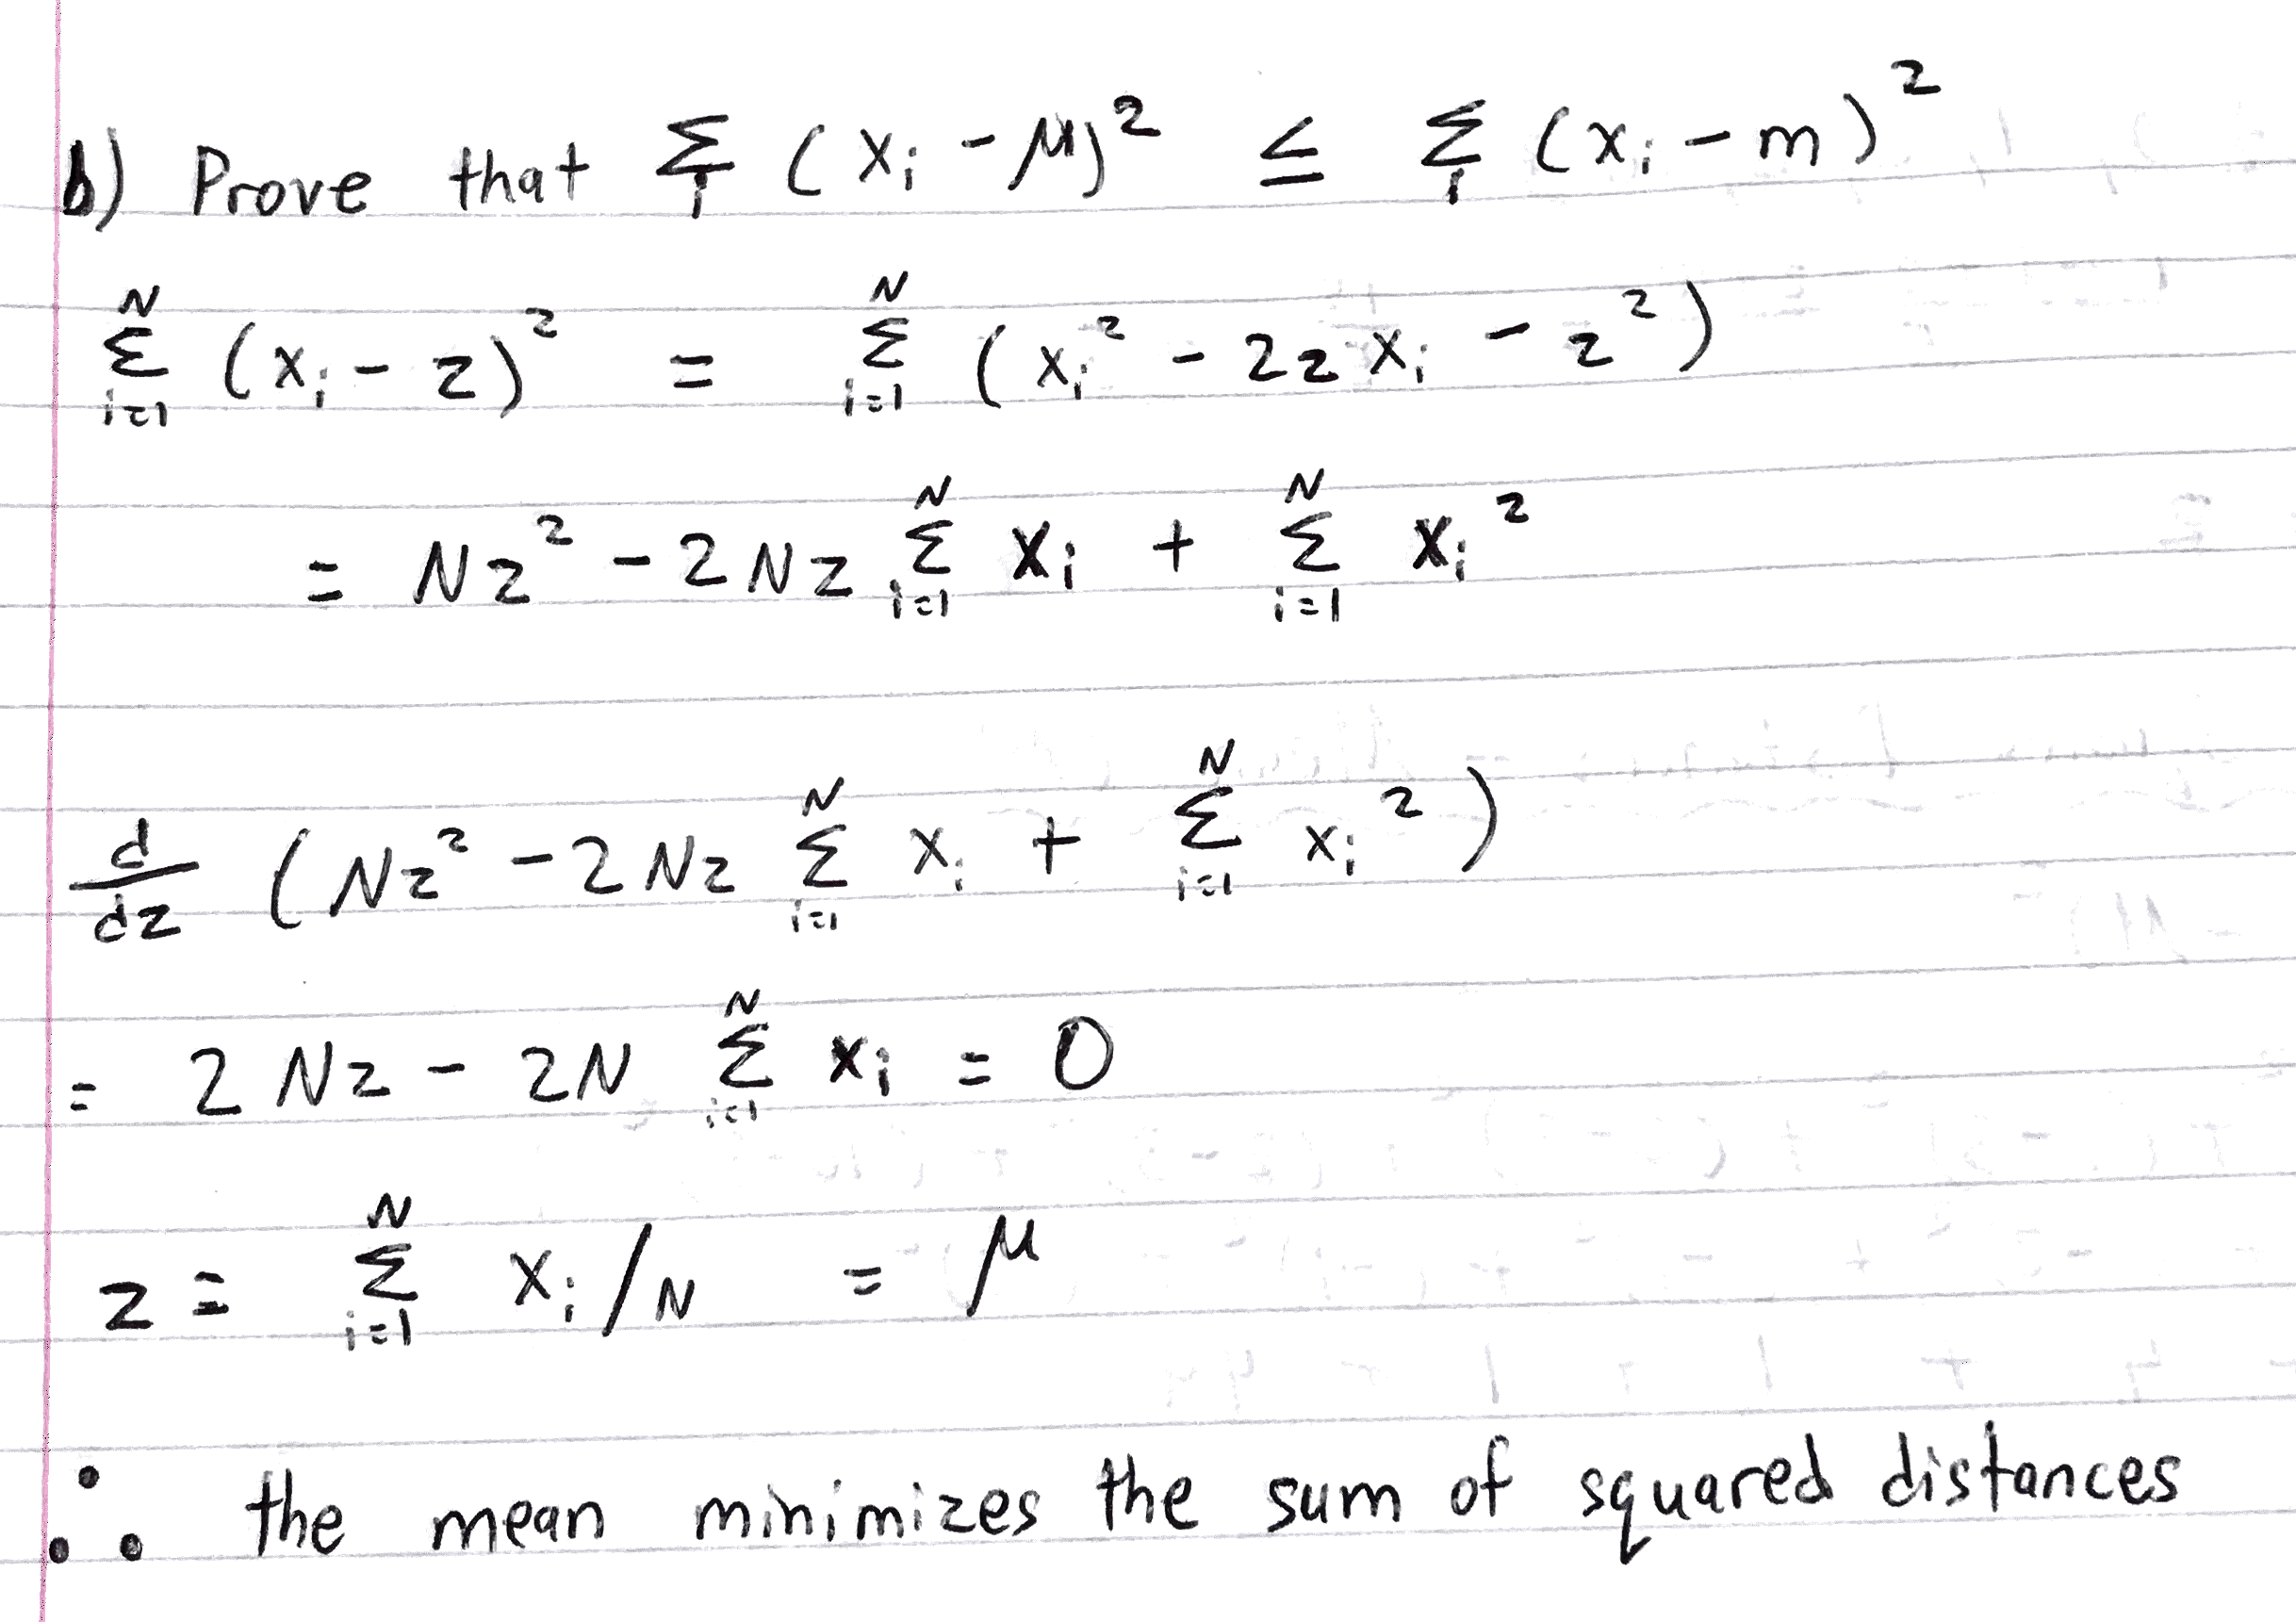 b) Prove that Σ_i (x_i - μ)² ≤ Σ_i (x_i - m)²
Σ_{i=1}^{N} (x_i - z)² = Σ_{i=1}^{N} (x_i² - 2z x_i - z²)
= Nz² - 2Nz Σ_{i=1}^{N} x_i + Σ_{i=1}^{N} x_i²
d/dz (Nz² - 2Nz Σ_{i=1}^{N} x_i + Σ_{i=1}^{N} x_i²)
= 2Nz - 2N Σ_{i=1}^{N} x_i = 0
z = Σ_{i=1}^{N} x_i/N = μ
∴ the mean minimizes the sum of squared distances